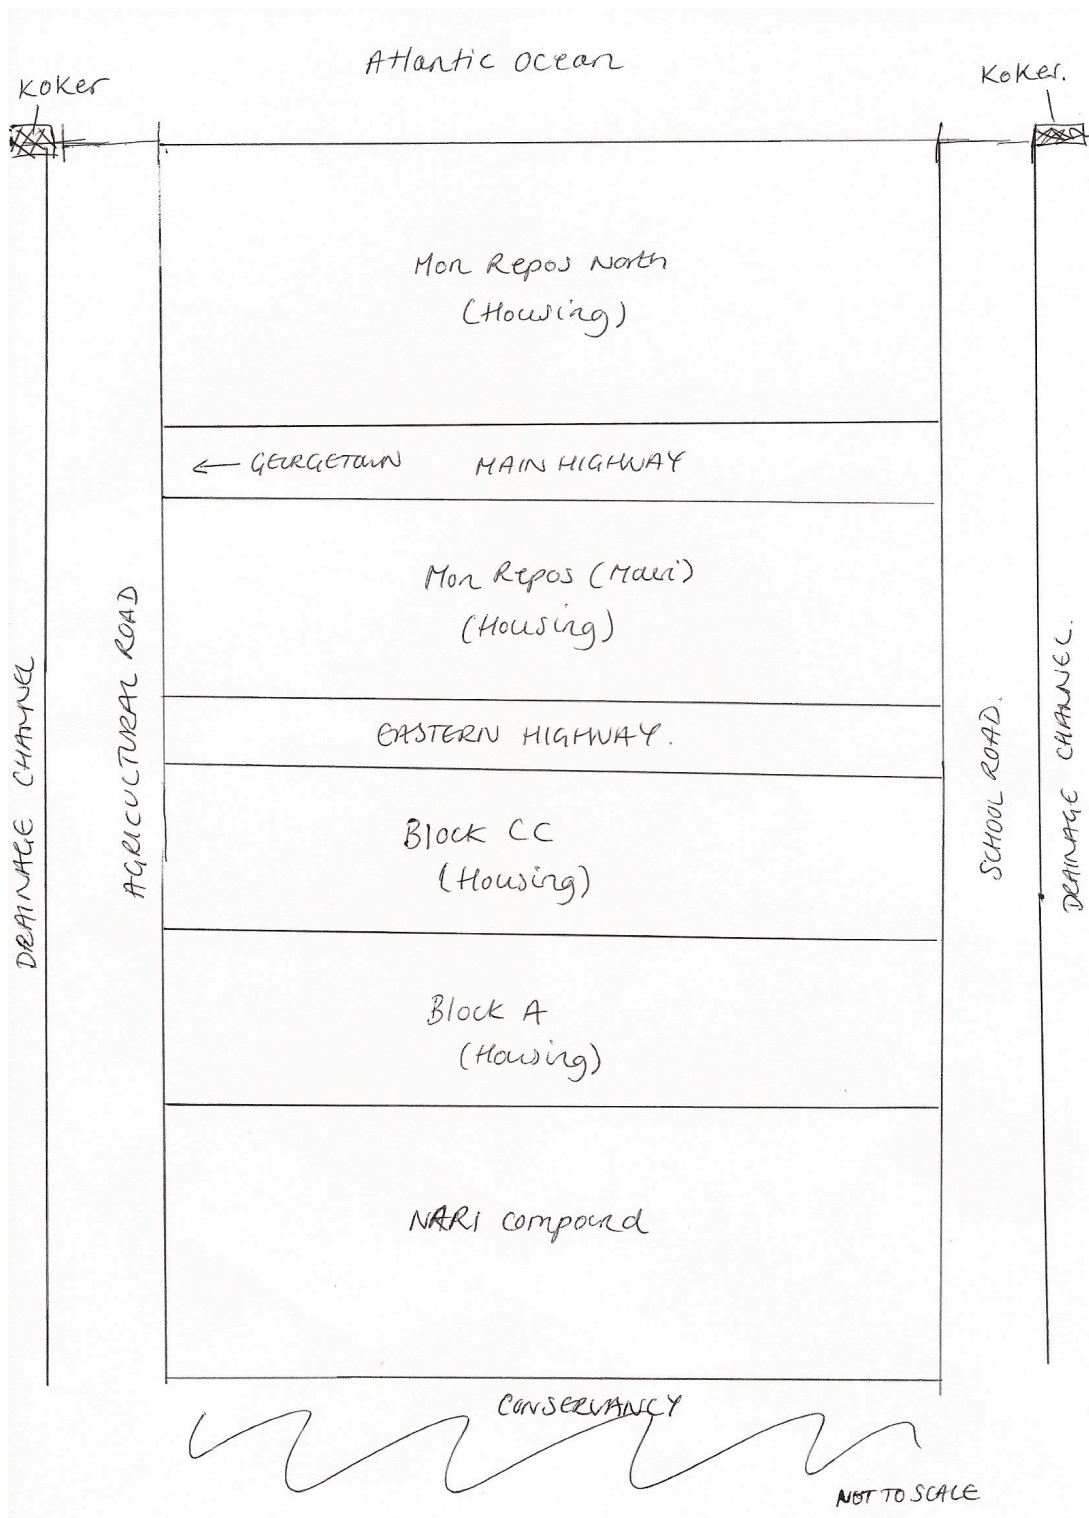 Atlantic Ocean
Koker
Koker.
Mon Repos North
(Housing)
← GEORGETOWN MAIN HIGHWAY
Mon Repos (Main)
(Housing)
EASTERN HIGHWAY.
Block CC
(Housing)
Block A
(Housing)
NARI compound
CONSERVANCY
NOT TO SCALE
DRAINAGE CHANNEL
AGRICULTURAL ROAD
SCHOOL ROAD.
DRAINAGE CHANNEL.